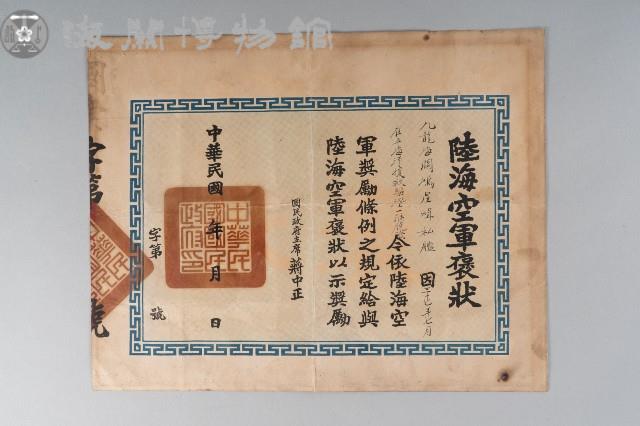 海關博物館
陸海空軍褒狀
九龍海關 星 私艦 因 年七月
今依陸海空
軍獎勵條例之規定給與
陸海空軍褒狀以示獎勵
國民政府主席蔣中正
中華民國 年 月 日
中華民國國民政府印
字第 號
字第 號